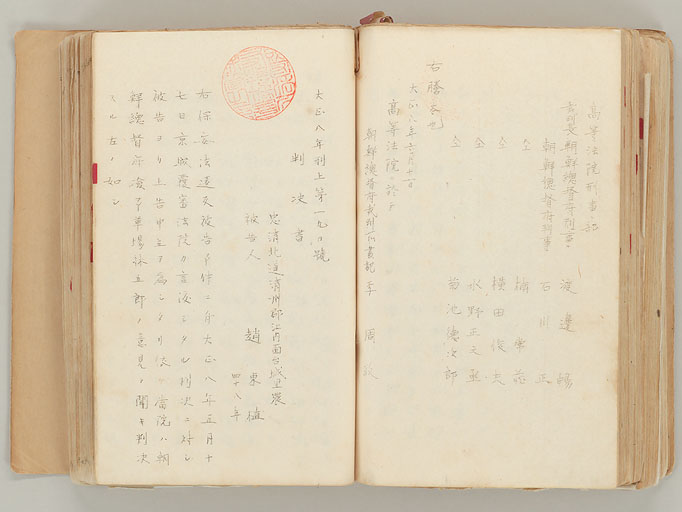 高等法院刑事部
裁判長朝鮮總督府判事 渡邊暢
朝鮮總督府判事 石川正
仝
仝 横田俊夫
仝 水野正之丞
仝 菊池德次郎
右謄本也
大正八年六月十二日
高等法院ニ於テ
朝鮮總督府裁判所書記 李
大正八年刑上第一九〇號
判決書
忠清北道清州郡江內面台城里農
被告人 趙東植
四十八年
右保安法違反被告事件ニ付大正八年五月十
七日京城覆審法院カ言渡シタル判決ニ對シ
被告ヨリ上告申立ヲ爲シタリ依テ當院ハ朝
鮮總督府檢事草場林五郎ノ意見ヲ聞キ判決
スル左ノ如シ